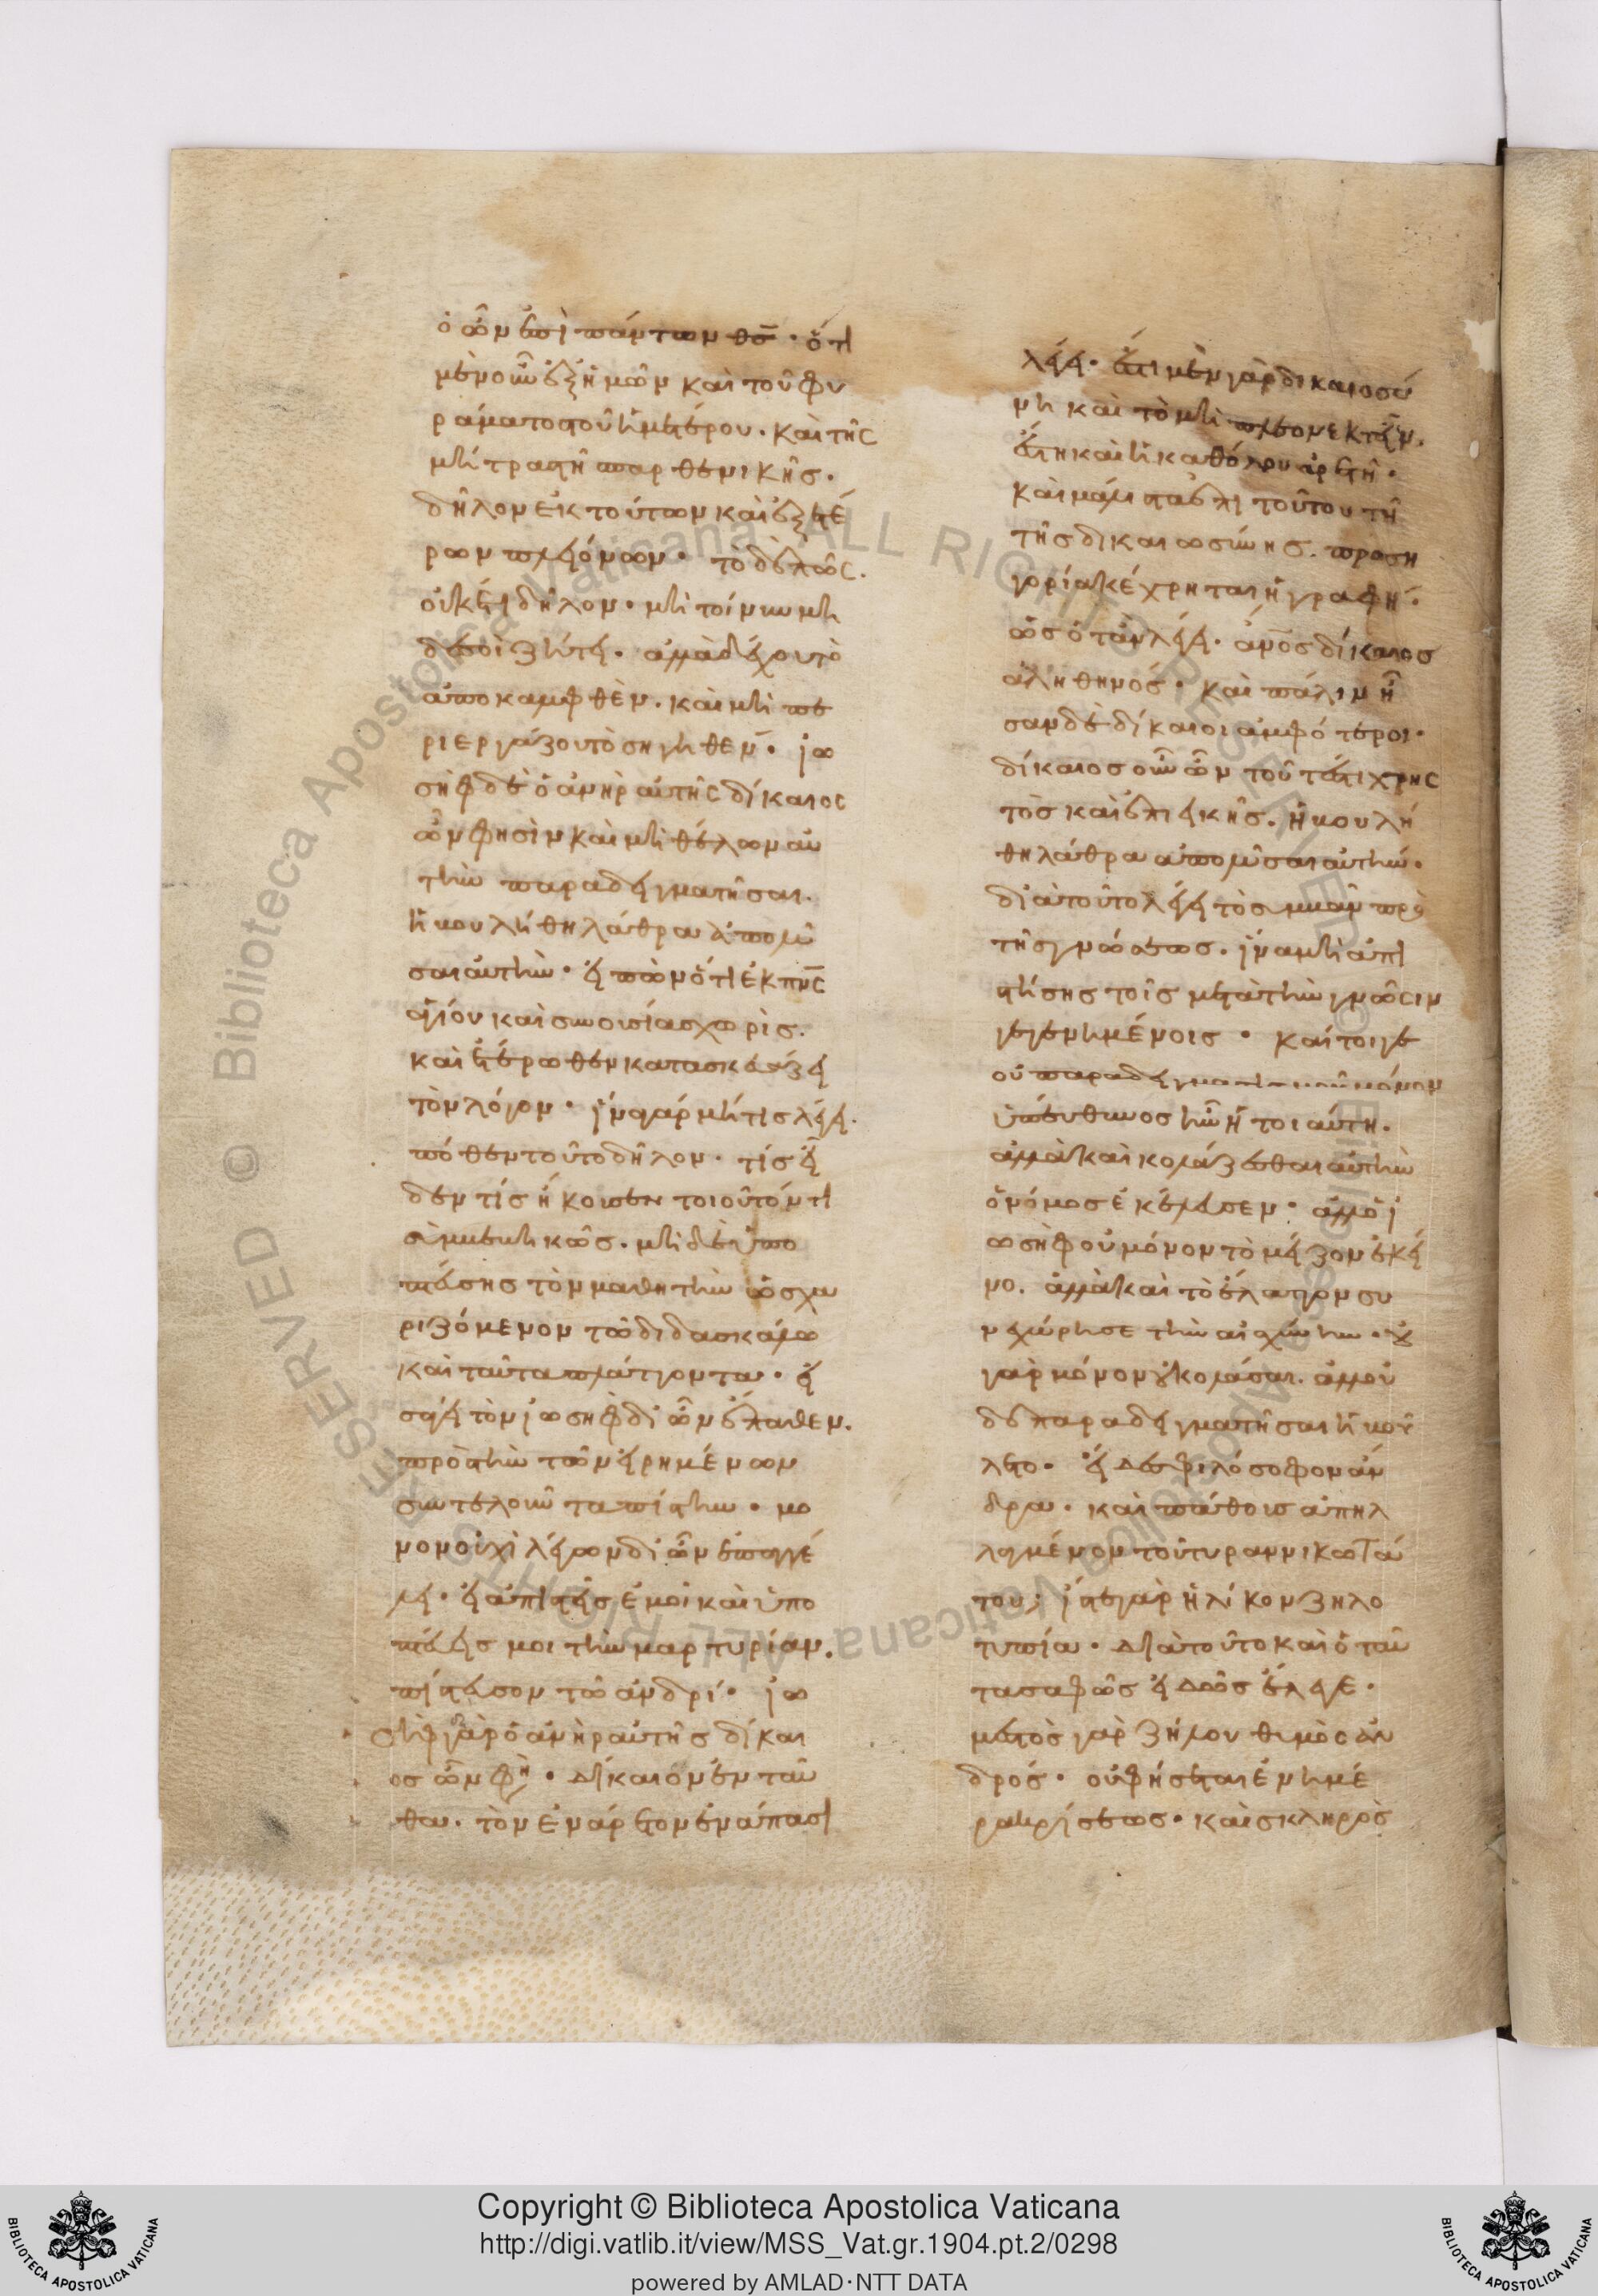 ὁ ὢν ἐπὶ πάντων θς̅ · ὅτι
μὲν οὖν ἐξ ἡμῶν καὶ τοῦ φυ
ράματος τοῦ ἡμετέρου . καὶ τῆς
μήτρας τῆ παρθενικῆς .
δῆλον ἐκ τούτων καὶ ἐξ ἑτέ
ρων πλειόνων · τὸ δὲ πῶς .
οὐκέτι δῆλον · μὴ τοίνυν μη
δὲ σὺ ζήτει · ἀλλὰ δέχου τὸ
ἀποκαλυφθὲν . καὶ μὴ πε
ριεργάζου τὸ σιγηθέν · ἰω
σὴφ δὲ ὁ ἀνὴρ αὐτῆς δίκαιος
ὢν φησὶν καὶ μὴ θέλων αὐ
τὴν παραδειγματῆσαι .
ἠβουλήθη λάθρα ἀπολῦ
σαι αὐτὴν · εἰπὼν ὅτι ἐκ πνς̅
ἁγίου καὶ συνουσίας χωρὶς .
καὶ ἑτέρωθεν κατασκευάζει
τὸν λόγον · ἵνα γὰρ μή τις λέγει .
πόθεν τοῦτο δῆλον · τίς εἶ
δεν τίς ἤκουσεν τοιοῦτόν τι
συμβεβηκῶς . μὴ δὲ ὑπο
πτεύσης τὸν μαθητὴν ὡς χα
ριζόμενον τῶ διδασκάλω
καὶ ταῦτα πλάττοντα · εἰ
σάγει τὸν ἰωσὴφ δι ὧν ἔπαθεν .
πρὸς τὴν τῶν εἰρημένων
συντελοῦντα πίστιν · μο
νονουχὶ λέγων δι ὧν ἐπαγγέ
λει · εἰ ἀπιστεῖς ἐμοὶ καὶ ὑπο
πτεύεις μοι τὴν μαρτυρίαν .
πίστευσον τῶ ἀνδρί · ἰω
σὴφ γὰρ ὁ ἀνὴρ αὐτῆς δίκαι
ος ὢν φη · δίκαιον ἐνταῦ
θα . τὸν ἐνάρετον ἐν ἅπασι
λέγει · ἔστι μὲν γὰρ δικαιοσύ
νη καὶ τὸ μὴ πλεονεκτεῖν .
ἔστι καὶ ἡ καθόλου ἀρετὴ .
καὶ μάλιστα ἐπὶ τούτου τῆ
τῆς δικαιωσύνης . προση
γορία κέχρηται ἡ γραφή .
ὡς ὅταν λέγει · ἀνος̅ δίκαιος
ἀληθηνός · καὶ πάλιν ἦ
σαν δὲ δίκαιοι ἀμφότεροι ·
δίκαιος οὖν ὢν τουτέστι χρης
τὸς καὶ ἐπιεικῆς . ἠβουλή
θη λάθρα ἀπολῦσαι αὐτήν .
διὰ τοῦτο λέγει τὸ συμβὰν πρὸ
τῆς γνώσεως . ἵνα μὴ ἀπι
στήσης τοῖς μετὰ τὴν γνῶσιν
γεγενημένοις · καίτοιγε
οὐ παραδειγματισμοῦ μόνον
ὑπεύθυνος ἦν ἡ τοιαύτη .
ἀλλὰ καὶ κολάζεσθαι αὐτὴν
ὁ νόμος ἐκέλευσεν · ἀλλ ὁ ἰ
ωσὴφ οὐ μόνον τὸ μεῖζον ἐκεῖ
νο . ἀλλὰ καὶ τὸ ἔλαττον συ
νεχώρησε τὴν αἰσχύνην . οὐ
γὰρ μόνον οὐ κολάσαι . ἀλλ οὐ
δὲ παραδειγματῆσαι ἠβού
λετο · εἶδες φιλόσοφον ἄν
δρα . καὶ πάθους ἀπηλ
λαγμένον τοῦ τυραννικωτά
του ; ἴστε γὰρ ἡλίκον ζηλο
τυπία . διὰ τοῦτο καὶ ὁ ταῦ
τα σαφῶς εἰδὼς ἔλεγε ·
μεστὸς γὰρ ζήλου θυμὸς ἀν
δρός · οὐ φήσεται ἐν ἡμέ
ρα κρίσεως · καὶ σκληρὸς
Copyright © Biblioteca Apostolica Vaticana
http://digi.vatlib.it/view/MSS_Vat.gr.1904.pt.2/0298
powered by AMLAD·NTT DATA